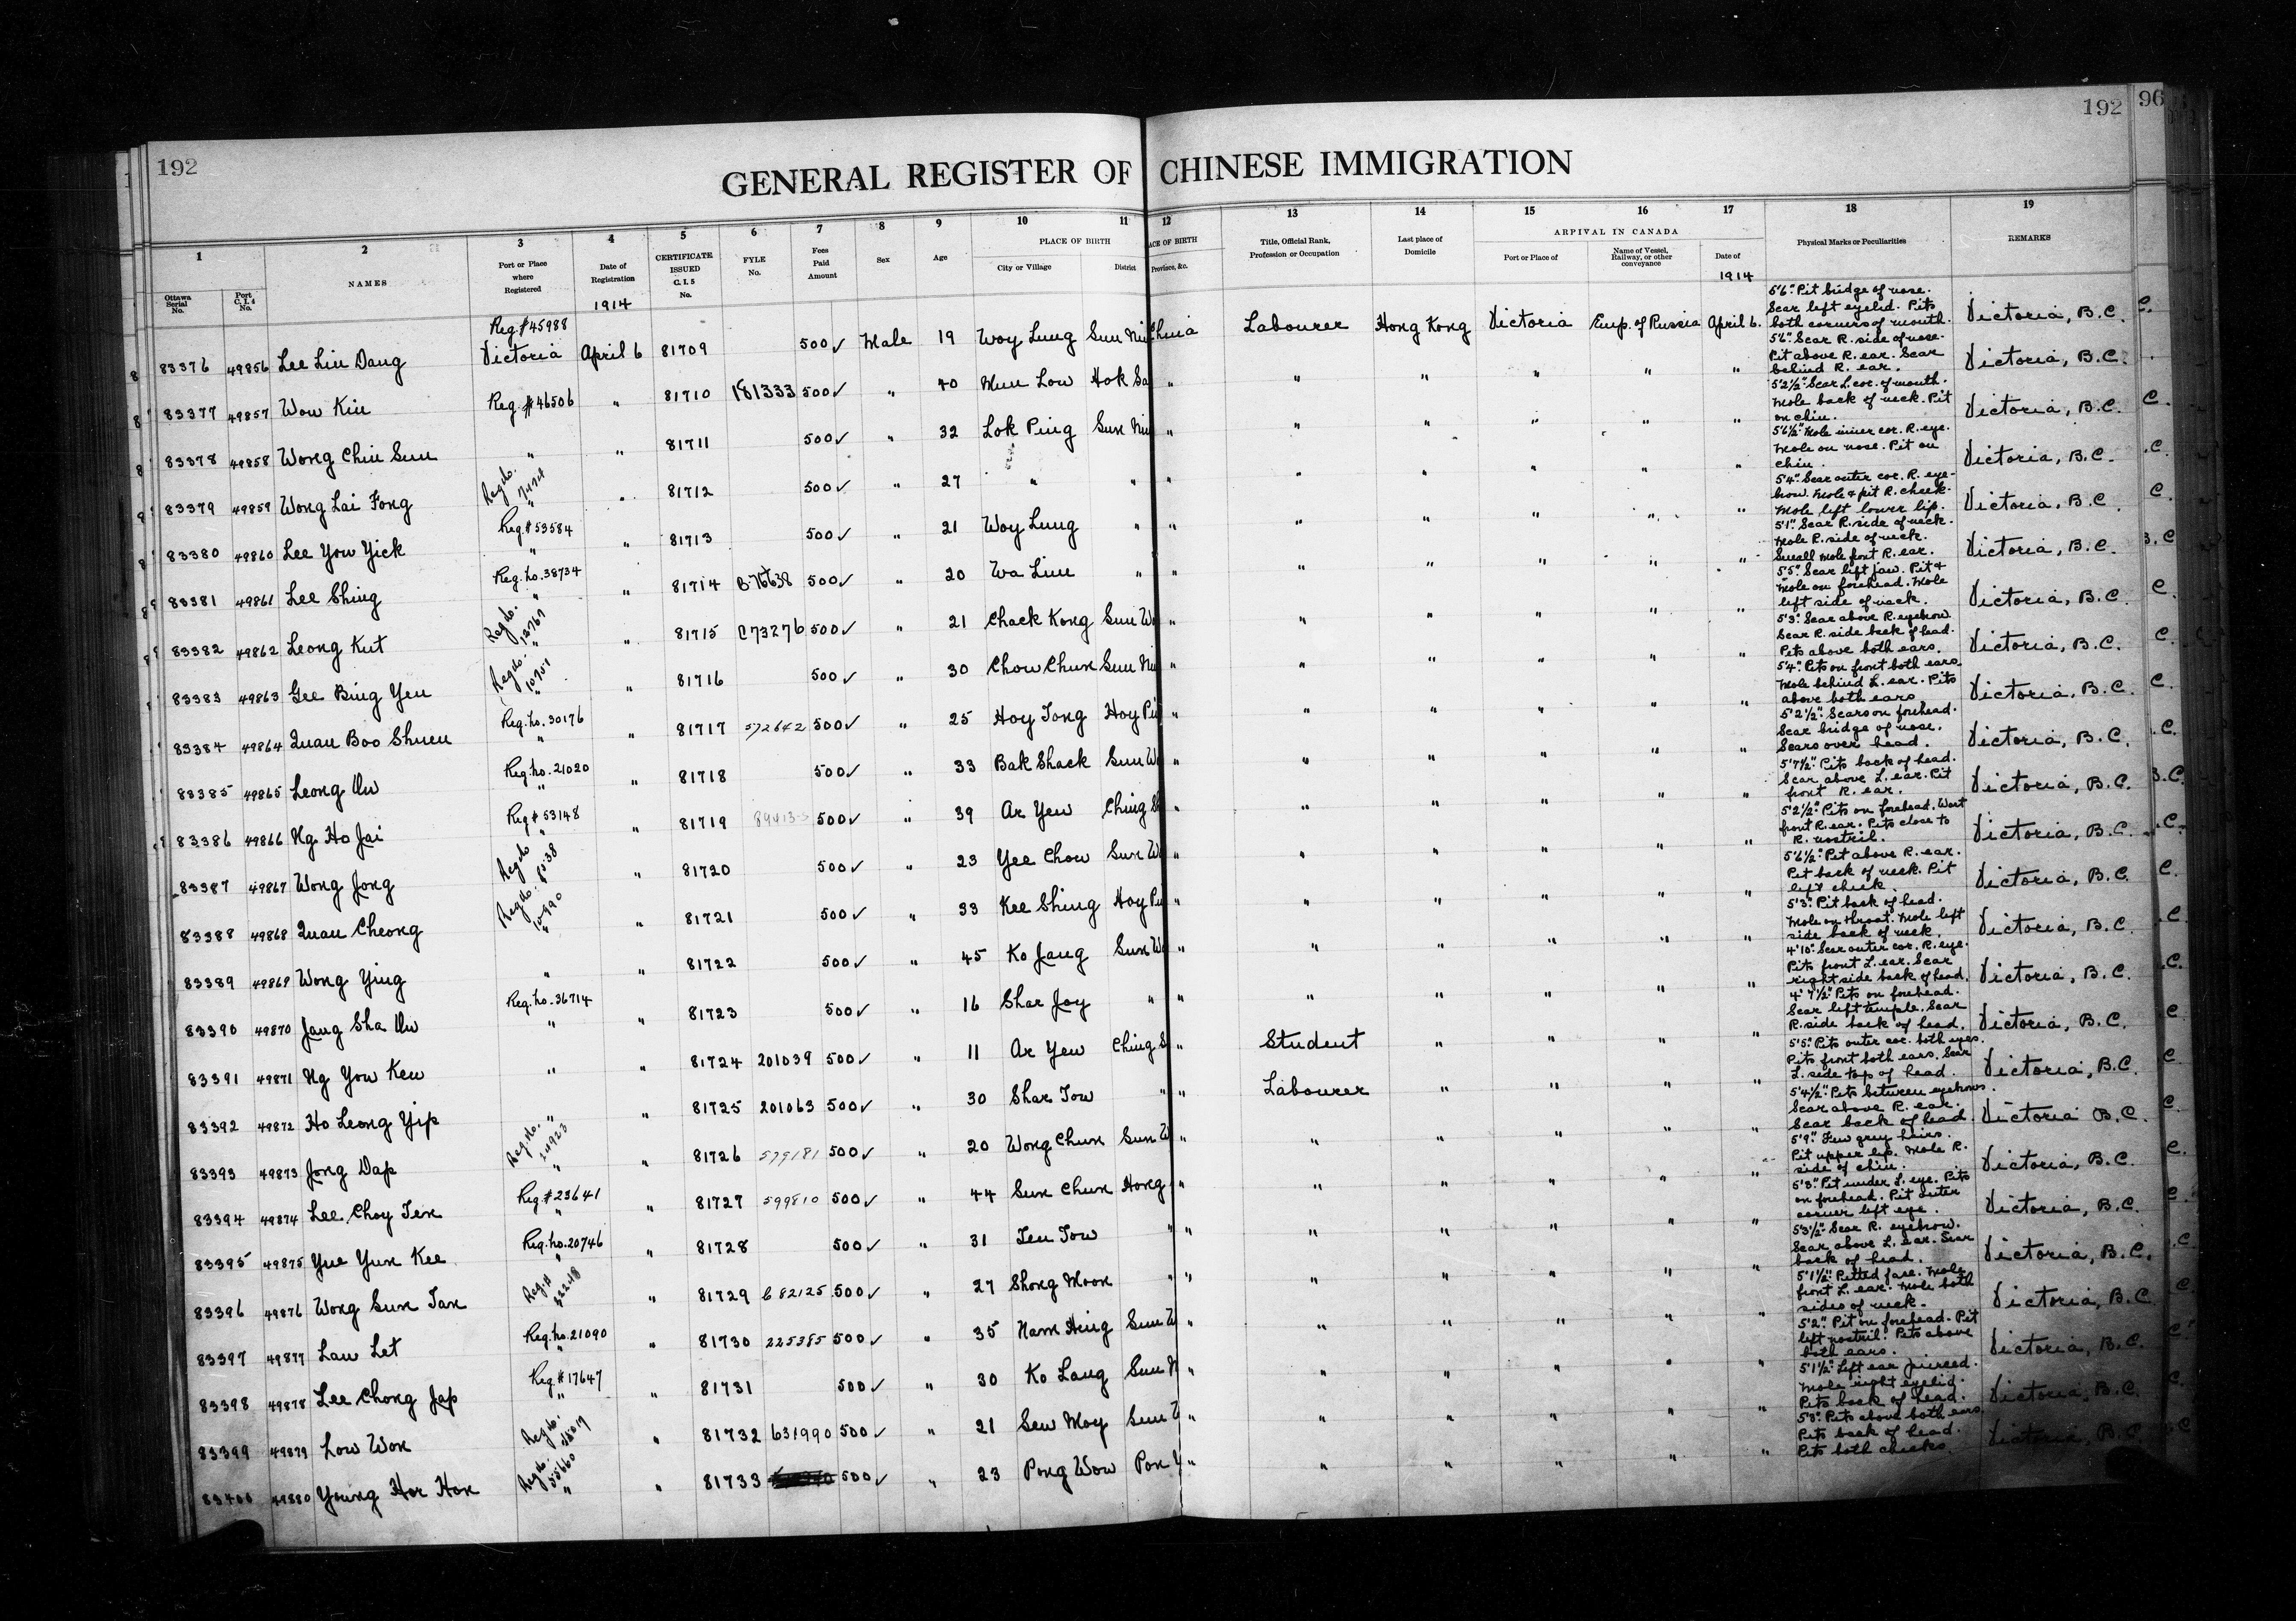 192
192
96
GENERAL REGISTER OF CHINESE IMMIGRATION
1 2 3 4 5 6 7 8 9 10 11 12 13 14 15 16 17 18 19
Ottawa Serial No. Port C.I.4 No. NAMES Port or Place where Registered Date of Registration CERTIFICATE ISSUED C.I.5 No. FYLE No. Fees Paid Amount Sex Age PLACE OF BIRTH City or Village District ACE OF BIRTH Province, &c. Title, Official Rank, Profession or Occupation Last place of Domicile ARRIVAL IN CANADA Port or Place of Name of Vessel, Railway, or other conveyance Date of Physical Marks or Peculiarities REMARKS
1914 1914
83376 49856 Lee Lin Dang Reg # 45988 Victoria April 6 81709 500✓ Male 19 Woy Lung Sun Ni China Labourer Hong Kong Victoria Emp. of Russia April 6. 5'6". Pit bridge of nose. Scar left eyelid. Pits both corners of mouth. Victoria, B.C.
83377 49857 Wow Kin Reg. # 46506 " 81710 181333 500✓ " 40 Mun Low Hok Sa " " " " " " 5'6". Scar R. side of nose. Pit above R. ear. Scar behind R. ear. Victoria, B.C.
83378 49858 Wong Chin Sun " " 81711 500✓ " 32 Lok Ping Sun Ni " " " " " " 5'2½". Scar L. cor. of mouth. Mole back of neck. Pit on chin. Victoria, B.C.
83379 49859 Wong Lai Fong Reg No. " " 81712 500✓ " 27 " " " " " " " " 5'6½". Mole inner cor. R. eye. Mole on nose. Pit on chin. Victoria, B.C.
83380 49860 Lee Yow Yick Reg. # 53584 " " 81713 500✓ " 21 Woy Lung " " " " " " " 5'4". Scar outer cor. R. eyebrow. Mole & pit R. cheek. Mole left lower lip. Victoria, B.C.
83381 49861 Lee Shing Reg. No. 38734 " " 81714 500✓ " 20 Wa Lin " " " " " " " 5'1". Scar R. side of neck. Mole R. side of neck. Small mole front R. ear. Victoria, B.C.
83382 49862 Leong Kut Reg No. 12767 " " 81715 C73276 500✓ " 21 Chack Kong Sun W " " " " " " 5'5". Scar left jaw. Pit & mole on forehead. Mole left side of neck. Victoria, B.C.
83383 49863 Gee Bing Yen Reg No. 10951 " " 81716 500✓ " 30 Chow Chun Sun Ni " " " " " " 5'3". Scar above R. eyebrow. Scar R. side back of head. Pits above both ears. Victoria, B.C.
83384 49864 Quan Boo Shuen Reg. No. 30176 " " 81717 572642 500✓ " 25 Hoy Tong Hoy Pi " " " " " " 5'4". Pits on front both ears. Mole behind L. ear. Pits above both ears. Victoria, B.C.
83385 49865 Leong On Reg. No. 21020 " " 81718 500✓ " 33 Bak Shack Sun W " " " " " " 5'2½". Scars on forehead. Scar bridge of nose. Scars over head. Victoria, B.C.
83386 49866 Ng Ho Jai Reg # 53148 " " 81719 500✓ " 39 Ar Yew Ching S " " " " " " 5'7½". Pits back of head. Scar above L. ear. Pit front R. ear. Victoria, B.C.
83387 49867 Wong Jong Reg No " 81720 500✓ " 23 Yee Chow Sun W " " " " " " 5'2½". Pits on forehead. Wart front R. ear. Pits close to R. nostril. Victoria, B.C.
83388 49868 Quan Cheong Reg No. " " 81721 500✓ " 33 Kee Shing Hoy Pi " " " " " " 5'6½". Pit above R. ear. Pit back of neck. Pit left cheek. Victoria, B.C.
83389 49869 Wong Ying " " 81722 500✓ " 45 Ko Jang Sun W " " " " " " 5'3". Pit back of head. Mole on throat. Mole left side back of neck. Victoria, B.C.
83390 49870 Jang Sha On Reg. No. 36714 " " 81723 500✓ " 16 Shar Joy " " " " " " " 4'10". Scar outer cor. R. eye. Pits front L. ear. Scar right side back of head. Victoria, B.C.
83391 49871 Ng Yow Ken " " 81724 201039 500✓ " 11 Ar Yew Ching S " Student " " " " 4'7½" Pits on forehead. Scar left temple. Scar R. side back of head. Victoria, B.C.
83392 49872 Ho Leong Yip " " 81725 201063 500✓ " 30 Shar Tow " " Labourer " " " " 5'5". Pits outer cor. both eyes. Pits front both ears. Scar L. side top of head. Victoria, B.C.
83393 49873 Jong Dap Reg. No. " " 81726 579181 500✓ " 20 Wong Chun Sun W " " " " " " 5'4½". Pits between eyebrows. Scar above R. ear. Scar back of head. Victoria B.C.
83394 49874 Lee Choy Ten Reg. # 23641 " " 81727 599810 500✓ " 44 Sun Chun Hong " " " " " " 5'9". Few grey hairs. Pit upper lip. Mole R. side of chin. Victoria, B.C.
83395 49875 Yue Yun Kee Reg. No. 20746 " " 81728 500✓ " 31 Ten Tow " " " " " " " 5'3". Pit under L. eye. Pits on forehead. Pit outer corner left eye. Victoria, B.C.
83396 49876 Wong Sun Tan Reg # " 81729 682125 500✓ " 27 Shong Moon " " " " " " " 5'3½". Scar R. eyebrow. Scar above L. ear. Scar back of head. Victoria, B.C.
83397 49877 Lau Let Reg. No. 21090 " 81730 225385 500✓ " 35 Nam Hing Sun W " " " " " " 5'1½". Pitted face. Mole front L. ear. Mole both sides of neck. Victoria, B.C.
83398 49878 Lee Chong Jap Reg. # 17647 " " 81731 500✓ " 30 Ko Lang Sun N " " " " " " 5'2". Pit on forehead. Pit left nostril. Pits above both ears. Victoria, B.C.
83399 49879 Low Won Reg No. " 81732 631990 500✓ " 21 Sew Moy Sun " " " " " " 5'1½". Left ear pierced. Mole right eyelid. Pits back of head. Victoria, B.C.
83400 49880 Young Hor Hon Reg No. 55660 " " 81733 500✓ " 23 Pong Wow Pon Y " " " " " " 5'3". Pits above both ears. Pits back of head. Pits both cheeks. Victoria, B.C.